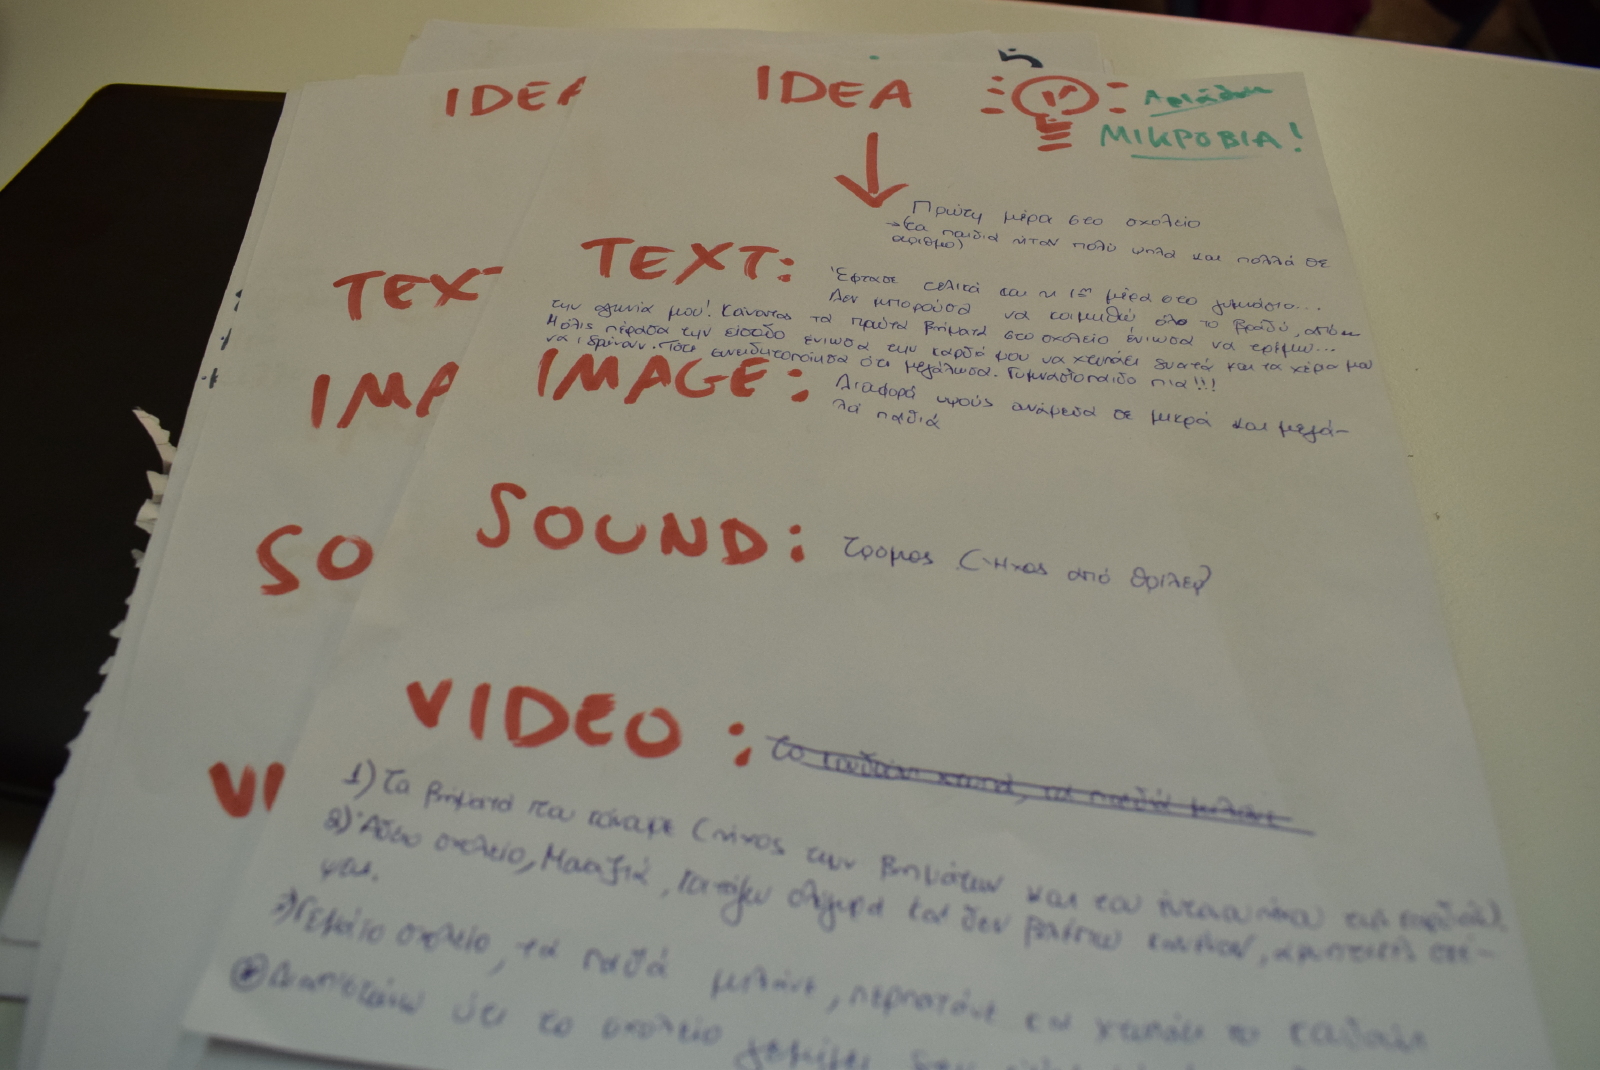 IDEA
IDEA
ΜΙΚΡΟΒΙΑ!
Πρώτη μέρα στο σχολείο
→ (τα παιδιά ήταν πολύ ψηλά και πολλά σε
αριθμό)
TEXT:
TEX
Έφτασε τελικά και η 1η μέρα στο γυμνάσιο...
Δεν μπορούσα να κοιμηθώ όλο το βράδυ, από
την αγωνία μου! Κάνοντας τα πρώτα βήματα στο σχολείο ένιωσα να τρέμω...
Μόλις πέρασα την είσοδο ένιωσα την καρδιά μου να χτυπάει δυνατά και τα χέρια μου
να ιδρώνουν. Τότε συνειδητοποίησα ότι μεγάλωσα. Γυμνασιόπαιδο πια!!!
IMAGE:
IMA
Διαφορά ύψους ανάμεσα σε μικρά και μεγά-
λα παιδιά
SOUND: τρόμος (ήχος από θρίλερ)
SO
VIDEO:
VI
1) Τα βήματα που κάναμε (ήχος των βημάτων και του
2) Άδειο σχολείο, Μοναξιά, κοιτάζω σίγουρα και δεν βλέπω κανέναν,
3) Γεμάτο σχολείο, τα παιδιά μιλάνε, περπατάνε και χτυπάει το κουδούνι
Διαπιστώνω ότι το σχολείο γεμίζει